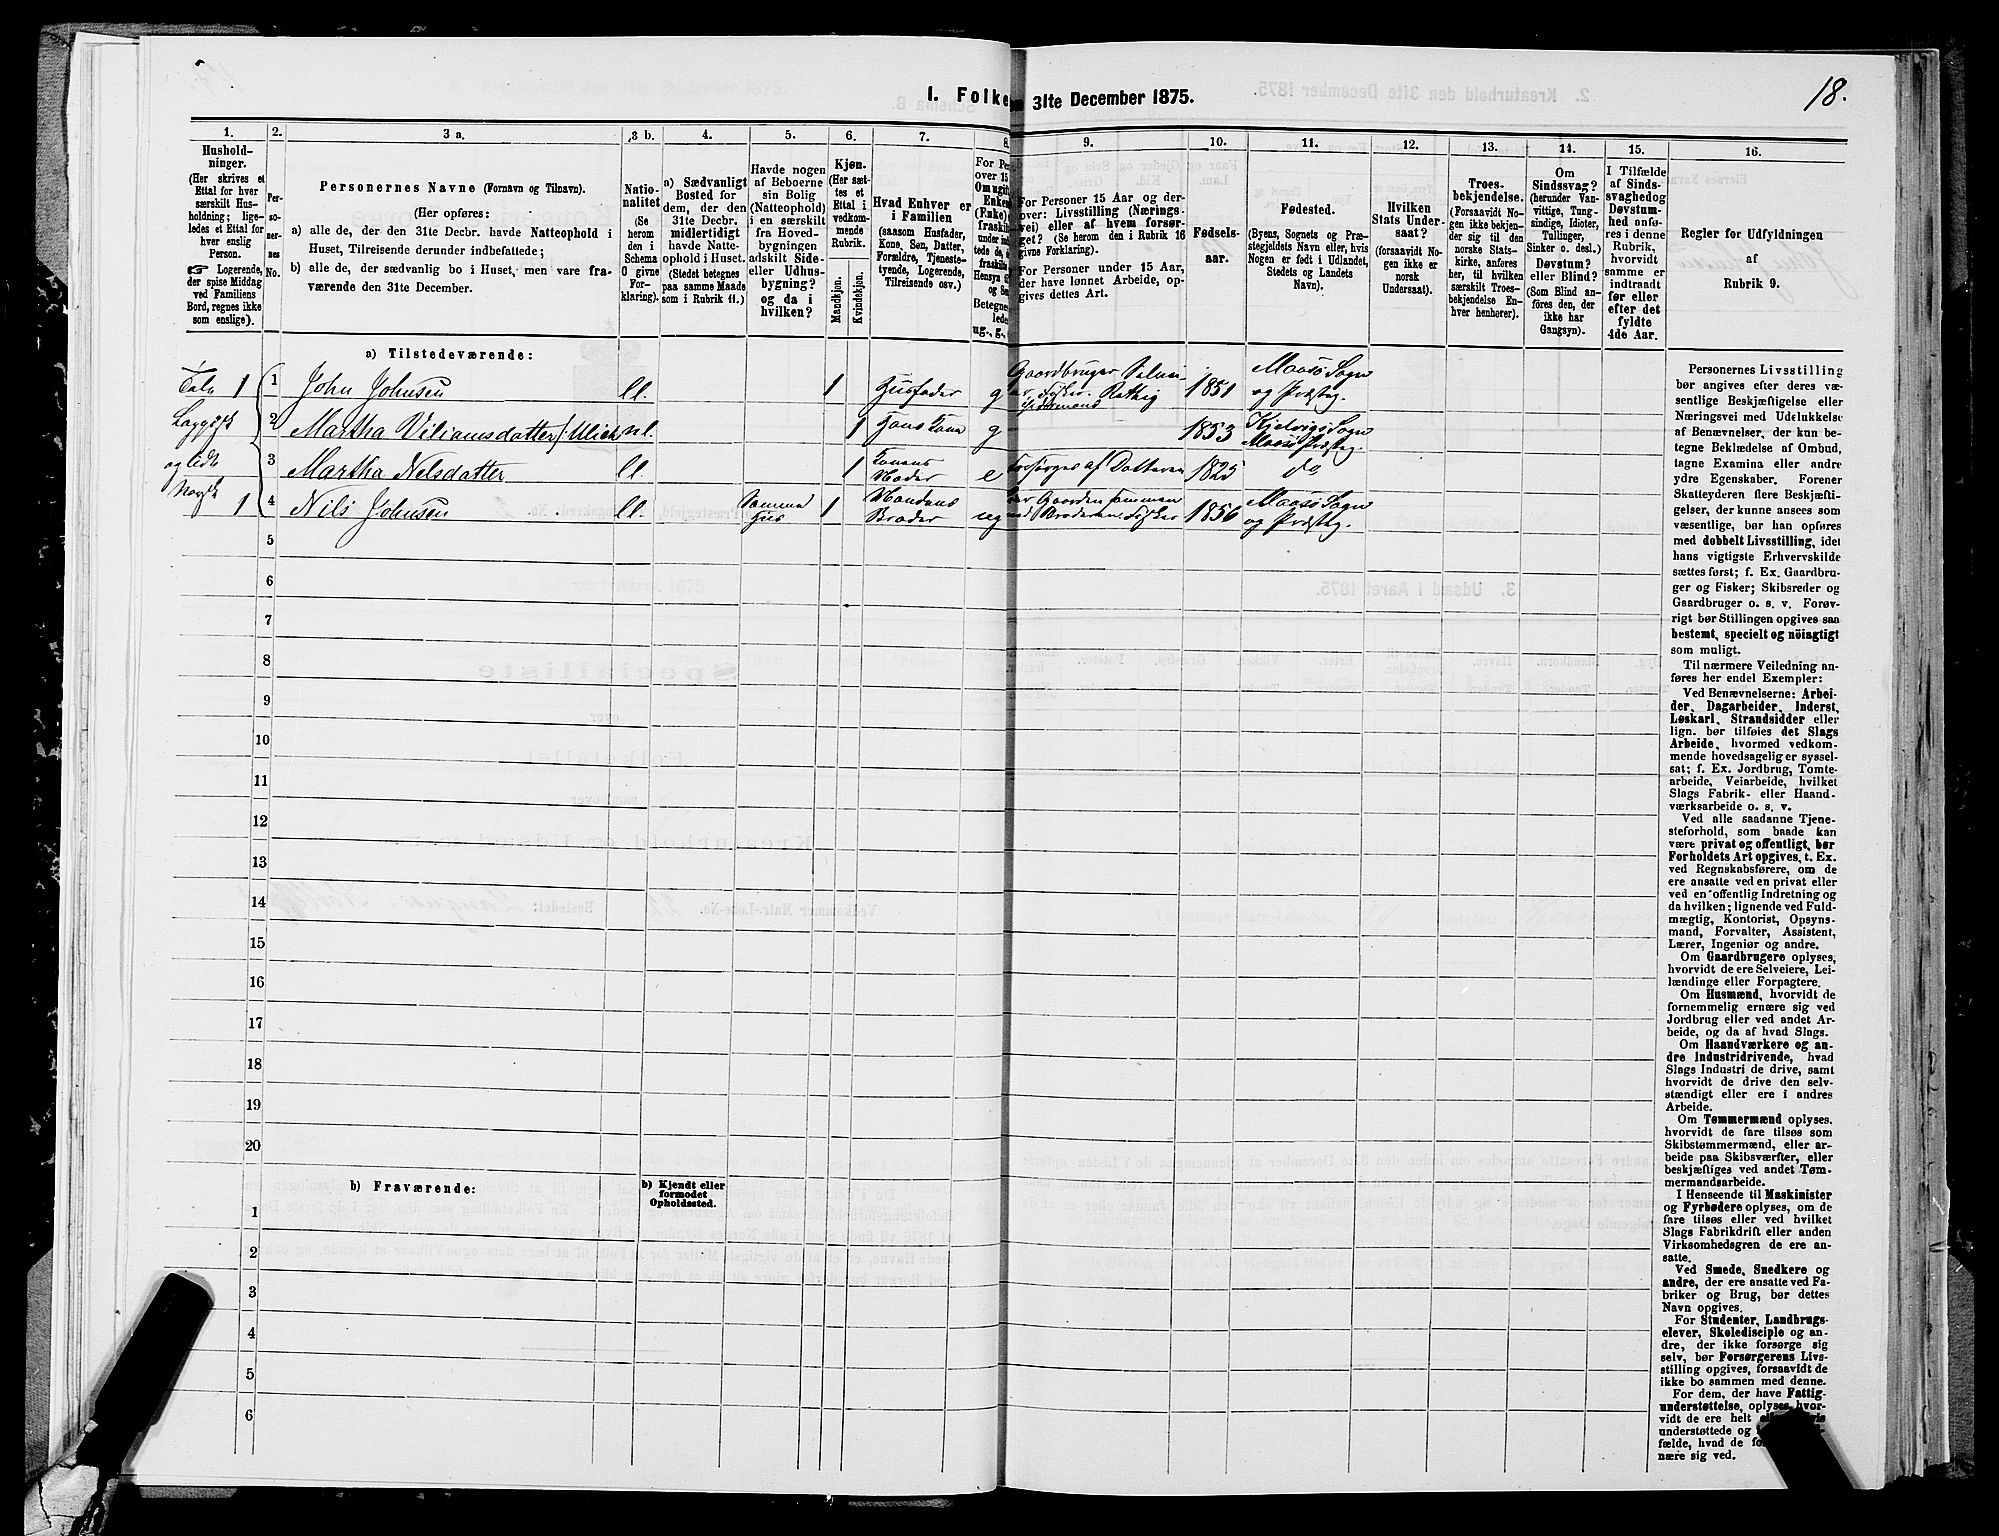 18.
I. Folke
31te December 1875.
1.
2.
3 a.
3 b.
4.
5.
6.
7.
8.
9.
10.
11.
12.
13.
14.
15.
16.
Hushold-
ninger.
(Her skrives et
Ettal for hver
særskilt Hus-
holdning; lige-
ledes et Ettal for
hver enslig
Person.
☞ Logerende,
der spise Middag
ved Familiens
Bord, regnes ikke
som enslige).
Per-
so-
ner-
nes
No.
Personernes Navne (Fornavn og Tilnavn).
(Her opføres:
a) alle de, der den 31te Decbr. havde Natteophold i
Huset, Tilreisende derunder indbefattede;
b) alle de, der sædvanlig bo i Huset, men vare fra-
værende den 31te December.
Natio-
nalitet
(Se
herom
den i
Schema
O givne
For-
klaring).
a) Sædvanligt
Bosted for
dem, der den
31te Decbr.
midlertidigt
havde Natte-
ophold i Huset.
(Stedet betegnes
paa samme Maade
som i Rubrik 11.)
Havde nogen
af Beboerne
sin Bolig
(Natteophold)
i en særskilt
fra Hoved-
bygningen
adskilt Side-
eller Udhus-
bygning?
og da i
hvilken?
Kjøn.
(Her sæt-
tes et
Ettal i
vedkom-
mende
Rubrik.
Mandkjøn.
Kvindekjøn.
Hvad Enhver er
i Familien
(saasom Husfader,
Kone, Søn, Datter,
Forældre, Tjeneste-
tyende, Logerende,
Tilreisende osv.)
For Pe
over 15
Om ugif
Enke
(Enke)
fraskil
Hensyn
og Se
Betegne
lede
ug., g.,
For Personer 15 Aar og der-
over: Livsstilling (Nærings-
vei) eller af hvem forsør-
get? (Se herom den i Rubrik 16
givne Forklaring).
For Personer under 15 Aar,
der have lønnet Arbeide, op-
gives dettes Art.
Fødsels-
aar.
Fødested.
(Byens, Sognets og Præ-
stegjeldets Navn eller, hvis
Nogen er født i Udlandet,
Stedets og Landets
Navn).
Hvilken
Stats Under-
saat?
(forsaavidt No-
gen ikke er
norsk
Undersaat).
Troes-
bekjendelse.
(Forsaavidt No-
gen ikke bekjen-
der sig til den
norske Stats-
kirke, anføres
her, til hvilken
særskilt Troes-
bekjendelse En-
hver henhører).
Om
Sindssvag?
(herunder Van-
vittige, Tung-
sindige, Idioter,
Tullinger,
Sinker o. desl.)
Døvstum?
eller Blind?
(Som Blind an-
føres den, der
ikke har
Gangsyn).
I Tilfælde
af Sinds-
svaghed og
Døvstum-
hed anfø-
res i denne
Rubrik,
hvorvidt
samme er
indtraadt
før eller
efter det
fyldte
4de Aar.
Regler for Udfyldningen
af
Rubrik 9.
a) Tilstedeværende:
1 1 John Johnsen ll. 1 Husfader g Gaardbruger Selvei- 1851 Maasø Sogn
Fisker og Præsteg.
2 Martha Viliamsdatter nl. 1 Hans Kone g 1853 Kjelvigs Sogn
Maasø Præsteg.
3 Martha Nelsdatter ll. 1 Konens
Moder e Forsørges af Datteren 1825 do
Norsk 1 4 Nils Johnsen ll. Samme
Hus 1 Mandens
Broder ug Gaarden sammen
Broderen Fisker 1856 Maasø Sogn
og Præsteg.
5
6
7
8
9
10
11
12
13
14
15
16
17
18
19
20
b) Fraværende:
b) Kjendt eller
formodet
Opholdssted.
1
2
3
4
5
6
Personernes Livsstilling
bør angives efter deres væ-
sentlige Beskjæftigelse eller
Næringsvei med Udelukkelse
af Benævnelser, der kun be-
tegne Beklædelse af Ombud,
tagne Examina eller andre
ydre Egenskaber. Forener
Skatteyderen flere Beskjæfti-
gelser, der kunne ansees som
væsentlige, bør han opføres
med dobbelt Livsstilling, idet
hans vigtigste Erhvervskilde
sættes først; f. Ex. Gaardbru-
ger og Fisker; Skibsreder og
Gaardbruger o. s. v. Forøv-
rigt bør Stillingen opgives saa
bestemt, specielt og nöiagtigt
som muligt.
Til nærmere Veiledning an-
føres her endel Exempler:
Ved Benævnelserne: Arbei-
der, Dagarbeider, Inderst,
Løskarl, Strandsidder eller
lign. bør tilføies det Slags
Arbeide, hvormed vedkom-
mende hovedsagelig er syssel-
sat; f. Ex. Jordbrug, Tomte-
arbeide, Veiarbeide, hvilket
Slags Fabrik- eller Haand-
værksarbeide o. s. v.
Ved alle saadanne Tjene-
steforhold, som baade kan
være privat og offentligt, bør
Forholdets Art opgives, t. Ex.
ved Regnskabsførere, om de
ere ansatte ved en privat eller
ved en offentlig Indretning og
da hvilken; lignende ved Fuld-
mægtig, Kontorist, Opsyns-
mand, Forvalter, Assistent,
Lærer, Ingeniør og andre.
Om Gaardbrugere oplyses,
hvorvidt de ere Selveiere, Lei-
lændinge eller Forpagtere.
Om Husmænd, hvorvidt de
fornemmelig ernære sig ved
Jordbrug eller ved andet Ar-
beide, og da af hvad Slags.
Om Haandværkere og an-
dre Industridrivende, hvad
Slags Industri de drive, samt
hvorvidt de drive den selv-
stændigt eller ere i andres
Arbeide.
Om Tømmermænd oplyses,
hvorvidt de fare tilsøs som
Skibstømmermænd, eller ar-
beide paa Skibsværfter, eller
beskjæftiges ved andet Tøm-
mermandsarbeide.
I Henseende til Maskinister
og Fyrbødere oplyses, om de
fare tilsøs eller ved hvilket
Slags Fabrikdrift eller anden
Virksomhedsgren de ere an-
satte.
Ved Smede, Snedkere og
andre, der ere ansatte ved Fa-
briker og Brug, bør dettes
Navn opgives.
For Studenter, Landbrugs-
elever, Skoledisciple og an-
dre, der ikke forsørge sig
selv, bør Forsørgerens Livs-
stilling opgives, forsaavidt de
ikke bo sammen med denne.
For dem, der have Fattig-
understøttelse, oplyses, hvor-
vidt de ere helt
understøttede og
fælde, hvad de
nære sig ved.